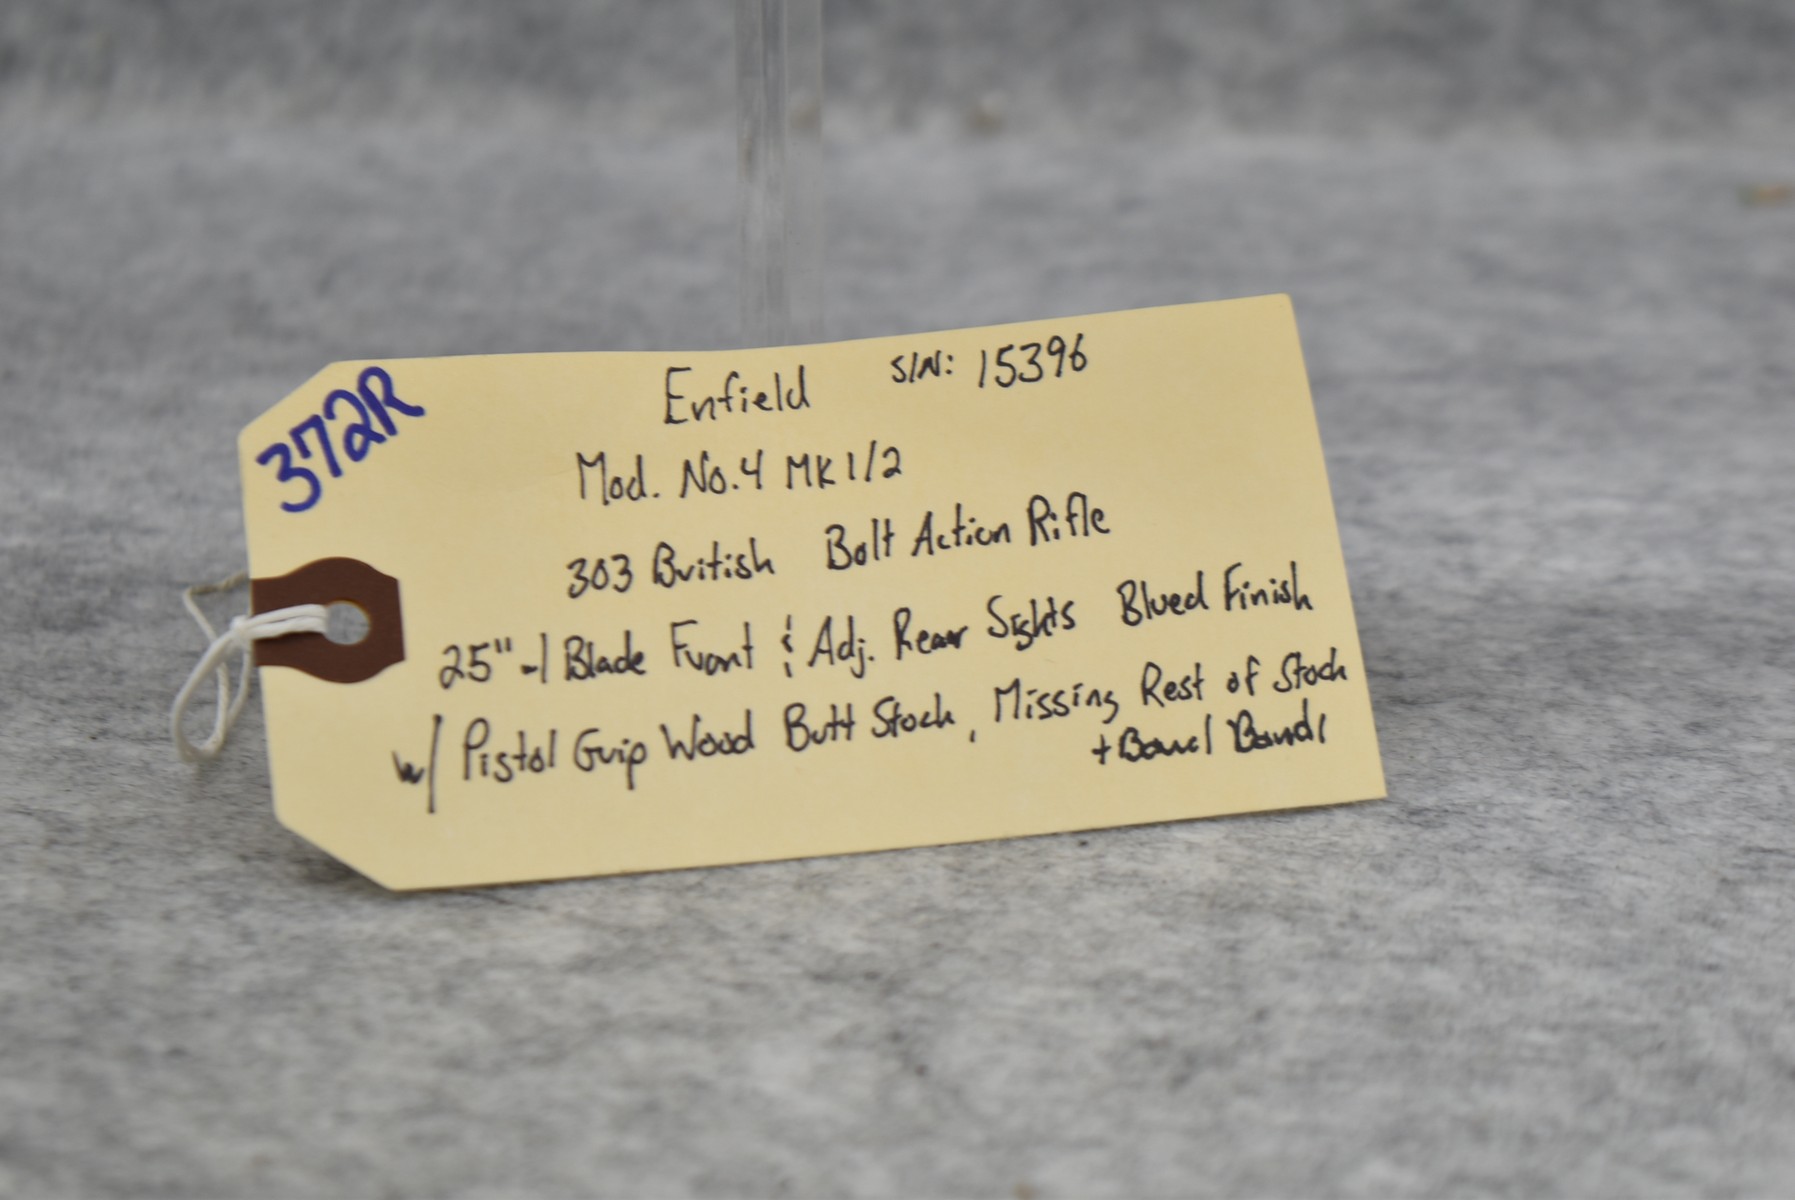 372R
Enfield S/N: 15396
Mod. No.4 MK 1/2
303 British Bolt Action Rifle
25" -1 Blade Front & Adj. Rear Sights Blued Finish
w/ Pistol Grip Wood Butt Stock, Missing Rest of Stock
+ Barrel Bands